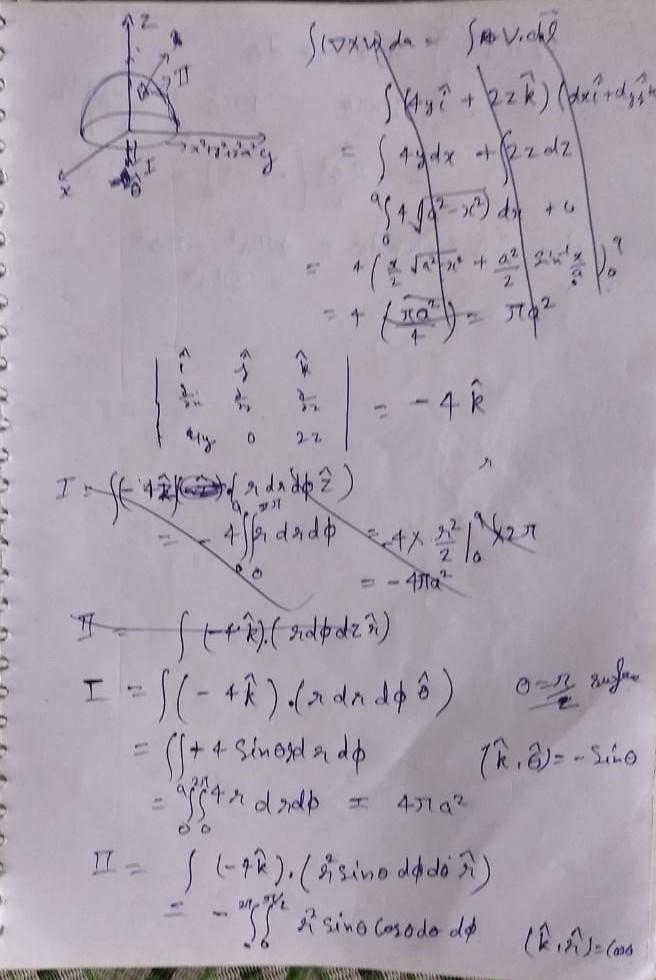 z
n̂
II
I
x
y
θ̂
→ x²+y²+z²=a²
∫(∇×V)da = ∫ V.dl
∫(4yî + 2zk̂)(dxî+dyĵ+
= ∫4ydx + ∫2zdz
∫₀ᵃ 4√(a²-x²) dx + 0
= 4(x/2 √(a²-x²) + a²/2 sin⁻¹ x/a)₀ᵃ
= 4(πa²/4) = πa²
| î ĵ k̂ |
| ∂/∂x ∂/∂y ∂/∂z | = -4k̂
| 4y 0 2z |
I = ∫(-4k̂).(r dr dϕ ẑ)
= -4∫₀ᵃ∫₀²π r dr dϕ = -4 × r²/2 |₀ᵃ × 2π
= -4πa²
II = ∫(-4k̂).(r dϕ dz r̂)
I = ∫(-4k̂).(r dr dϕ θ̂) θ = π/2 surface
= ∫∫+4 sinθ r dr dϕ (k̂.θ̂) = -sinθ
= ∫₀ᵃ∫₀²π 4r dr dϕ = 4πa²
II = ∫(-4k̂).(r² sinθ dϕ dθ r̂)
= -∫₀²π∫₀π/2 r² sinθ cosθ dθ dϕ (k̂.r̂) = cosθ